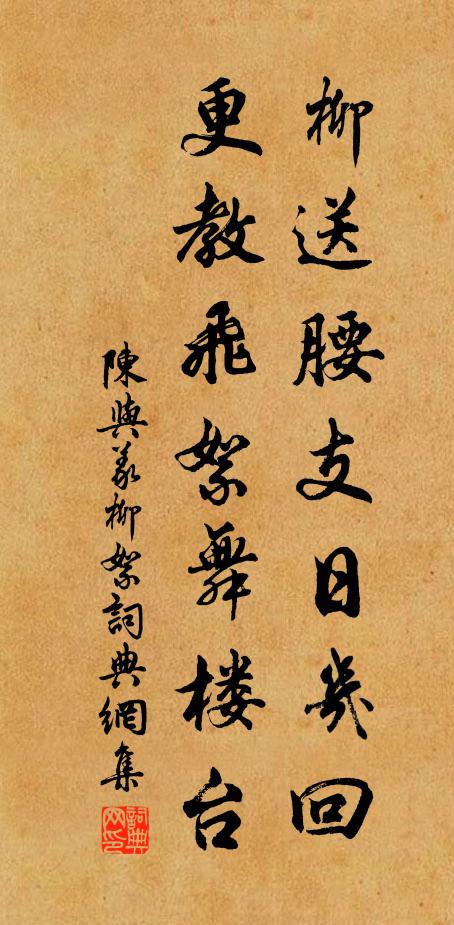 柳送腰支日幾回
更教飛絮舞楼台
陳與義柳絮詞典網集
詞典网印